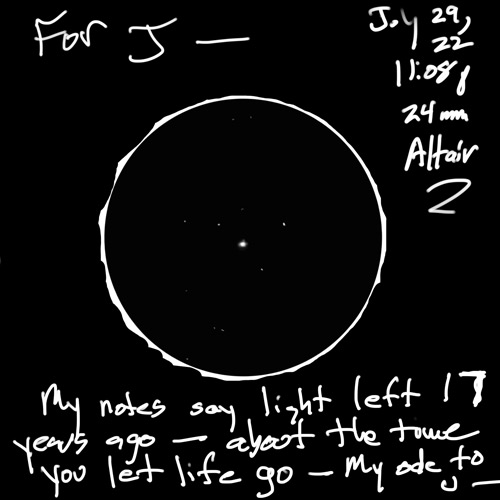 For J —
July 29,
22
11:08p
24mm
Altair
2
My notes say light left 17
years ago — about the tome
you let life go — My ode to
U —